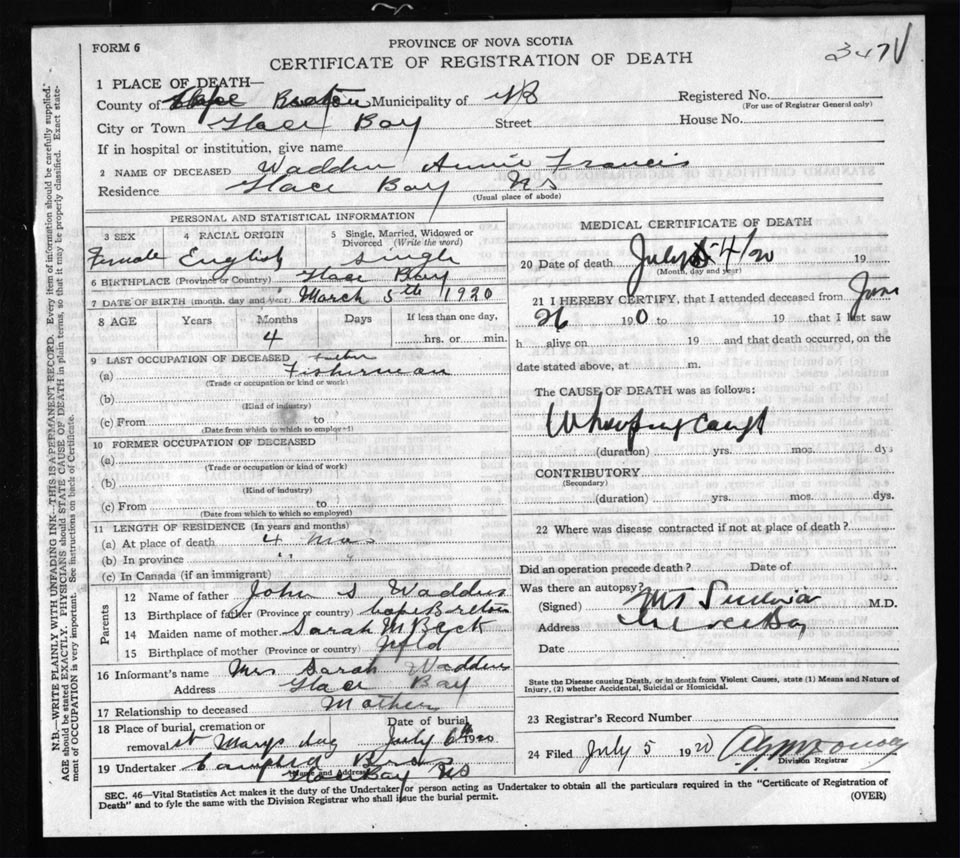 FORM 6
PROVINCE OF NOVA SCOTIA
CERTIFICATE OF REGISTRATION OF DEATH
347
1 PLACE OF DEATH—
County of Cape Breton Municipality of NS Registered No.
(For use of Registrar General only)
City or Town Glace Bay Street House No.
If in hospital or institution, give name
2 NAME OF DECEASED Wadden Annie Francis
Residence Glace Bay NS
(Usual place of abode)
PERSONAL AND STATISTICAL INFORMATION
3 SEX 4 RACIAL ORIGIN 5 Single, Married, Widowed or Divorced (Write the word)
Female English Single
6 BIRTHPLACE (Province or Country) Glace Bay
7 DATE OF BIRTH (month, day and year) March 5th 1920
8 AGE Years Months Days If less than one day,
4 hrs. or min.
9 LAST OCCUPATION OF DECEASED father
(a) Fisherman
(Trade or occupation or kind or work)
(b)
(Kind of industry)
(c) From to
(Date from which to which so employed)
10 FORMER OCCUPATION OF DECEASED
(a)
(Trade or occupation or kind of work)
(b)
(Kind of industry)
(c) From to
(Date from which to which so employed)
11 LENGTH OF RESIDENCE (In years and months)
(a) At place of death 4 mos
(b) In province " "
(c) In Canada (if an immigrant)
Parents
12 Name of father John S Wadden
13 Birthplace of father (Province or country) Cape Breton
14 Maiden name of mother Sarah M Beck
15 Birthplace of mother (Province or country) Nfld
16 Informant's name Mrs Sarah Wadden
Address Glace Bay
17 Relationship to deceased Mother
18 Place of burial, cremation or Date of burial
removal St Marys July 6th 1920
19 Undertaker Campbell Bros
Name and Address
Glace Bay NS
MEDICAL CERTIFICATE OF DEATH
20 Date of death July 4/20 19
(Month, day and year)
21 I HEREBY CERTIFY, that I attended deceased from June
26 19 0 to 19 that I last saw
h alive on 19 and that death occurred, on the
date stated above, at m.
The CAUSE OF DEATH was as follows:
Whooping Cough
(duration) yrs. mos. dys
CONTRIBUTORY
(Secondary)
(duration) yrs. mos. dys.
22 Where was disease contracted if not at place of death?
Did an operation precede death? Date of
Was there an autopsy?
(Signed) M.D.
Address Glace Bay
Date
State the Disease causing Death, or in death from Violent Causes, state (1) Means and Nature of
Injury, (2) whether Accidental, Suicidal or Homicidal.
23 Registrar's Record Number
24 Filed July 5 1920
Division Registrar
SEC. 46—Vital Statistics Act makes it the duty of the Undertaker or person acting as Undertaker to obtain all the particulars required in the "Certificate of Registration of
Death" and to fyle the same with the Division Registrar who shall issue the burial permit. (OVER)
N.B.—WRITE PLAINLY WITH UNFADING INK—THIS IS A PERMANENT RECORD. Every item of information should be carefully supplied.
AGE should be stated EXACTLY. PHYSICIANS should STATE CAUSE OF DEATH in plain terms, so that it may be properly classified. Exact state-
ment of OCCUPATION is very important. See instructions on back of Certificate.